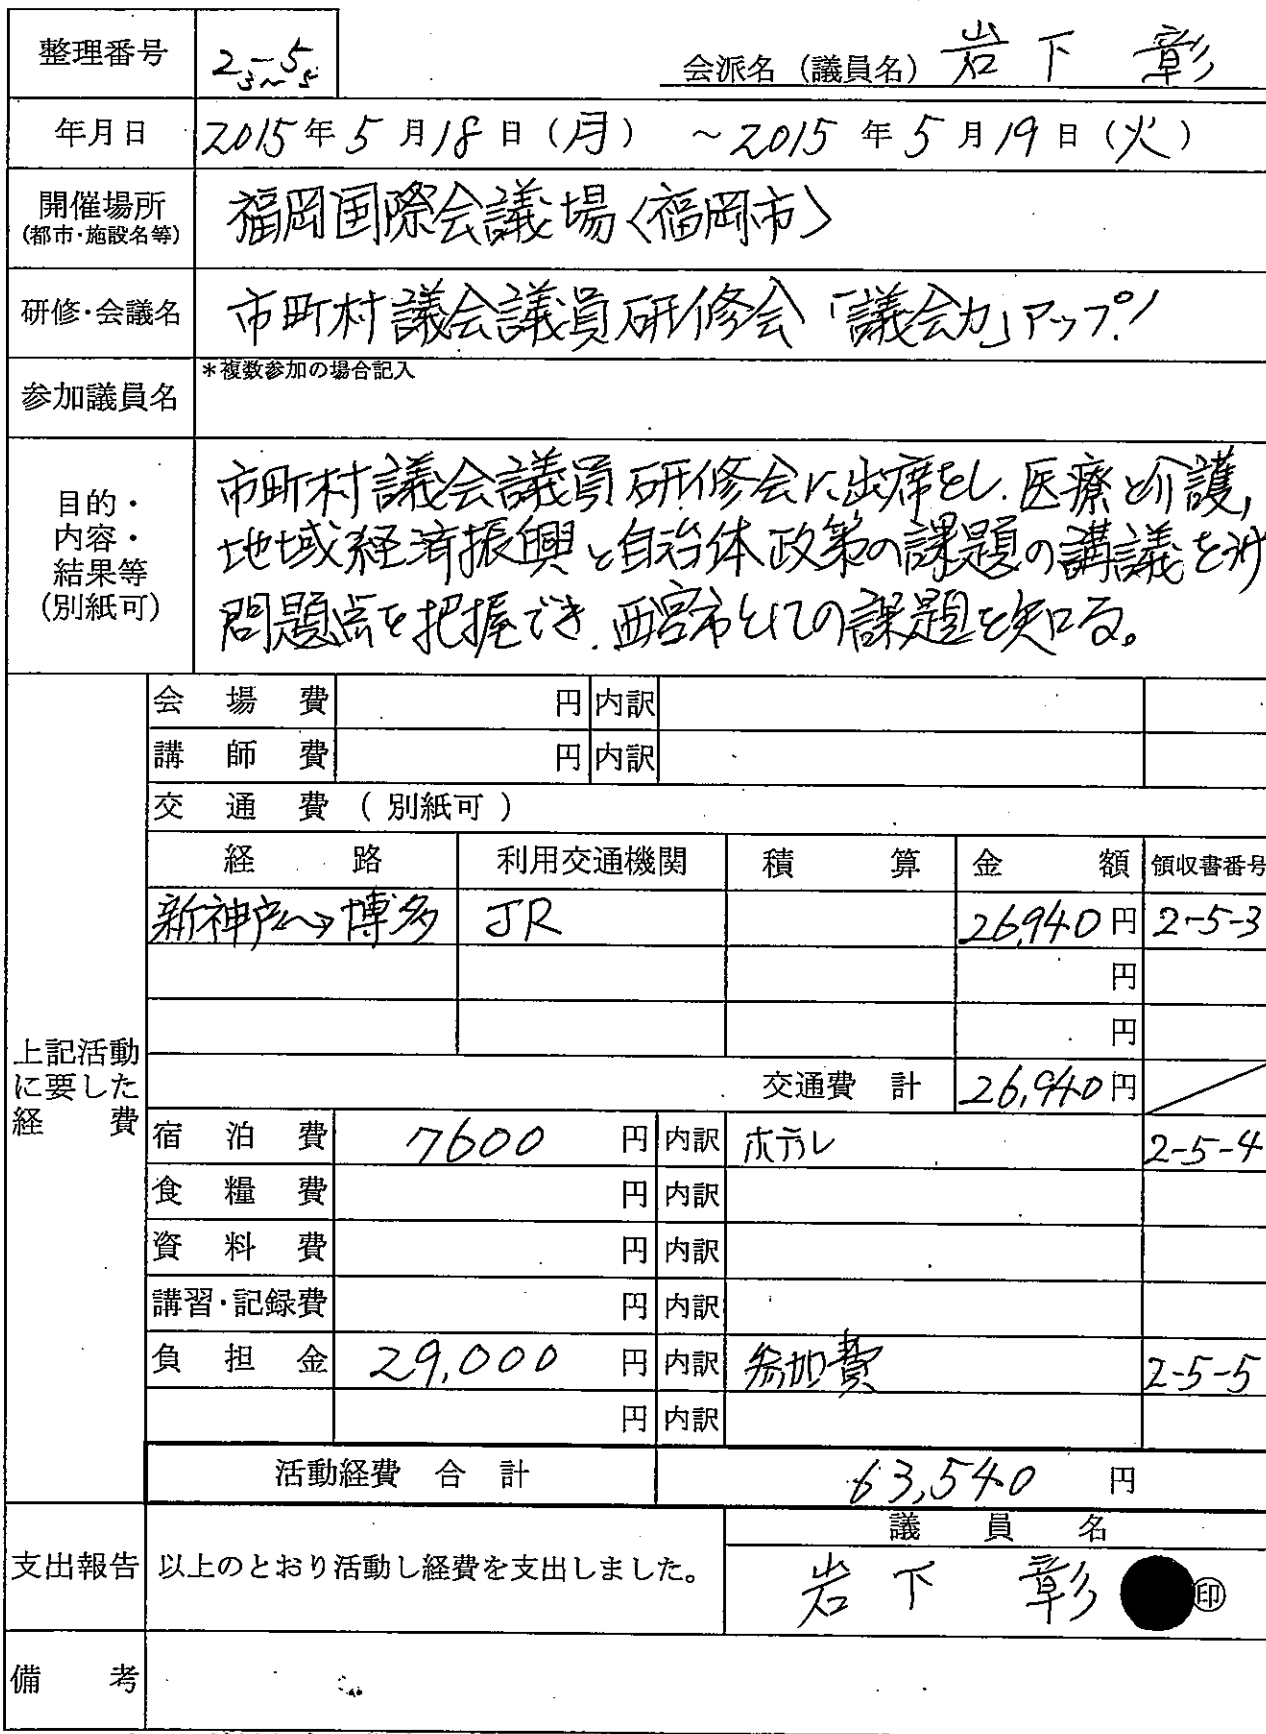 整理番号 2-5 3~5 会派名（議員名） 岩下 彰
年月日 2015年5月18日（月） ～2015年5月19日（火）
開催場所 福岡国際会議場〈福岡市〉
(都市・施設名等)
研修・会議名 市町村議会議員研修会「議会力」アップ!
参加議員名 *複数参加の場合記入
目的・
内容・
結果等
(別紙可)
市町村議会議員研修会に出席をし、医療と介護,
地域経済振興と自治体政策の課題の講議を受け
問題点を把握でき、西宮市としての課題を知る。
上記活動
に要した
経費
会場費 円 内訳
講師費 円 内訳
交通費 (別紙可)
経路 利用交通機関 積算 金額 領収書番号
新神戸↔博多 JR 26,940円 2-5-3
円
円
交通費 計 26,940円
宿泊費 7600 円 内訳 ホテル 2-5-4
食糧費 円 内訳
資料費 円 内訳
講習・記録費 円 内訳
負担金 29,000 円 内訳 参加費 2-5-5
円 内訳
活動経費 合計 63,540 円
支出報告 以上のとおり活動し経費を支出しました。
議員名
岩下 彰 ㊞
備考